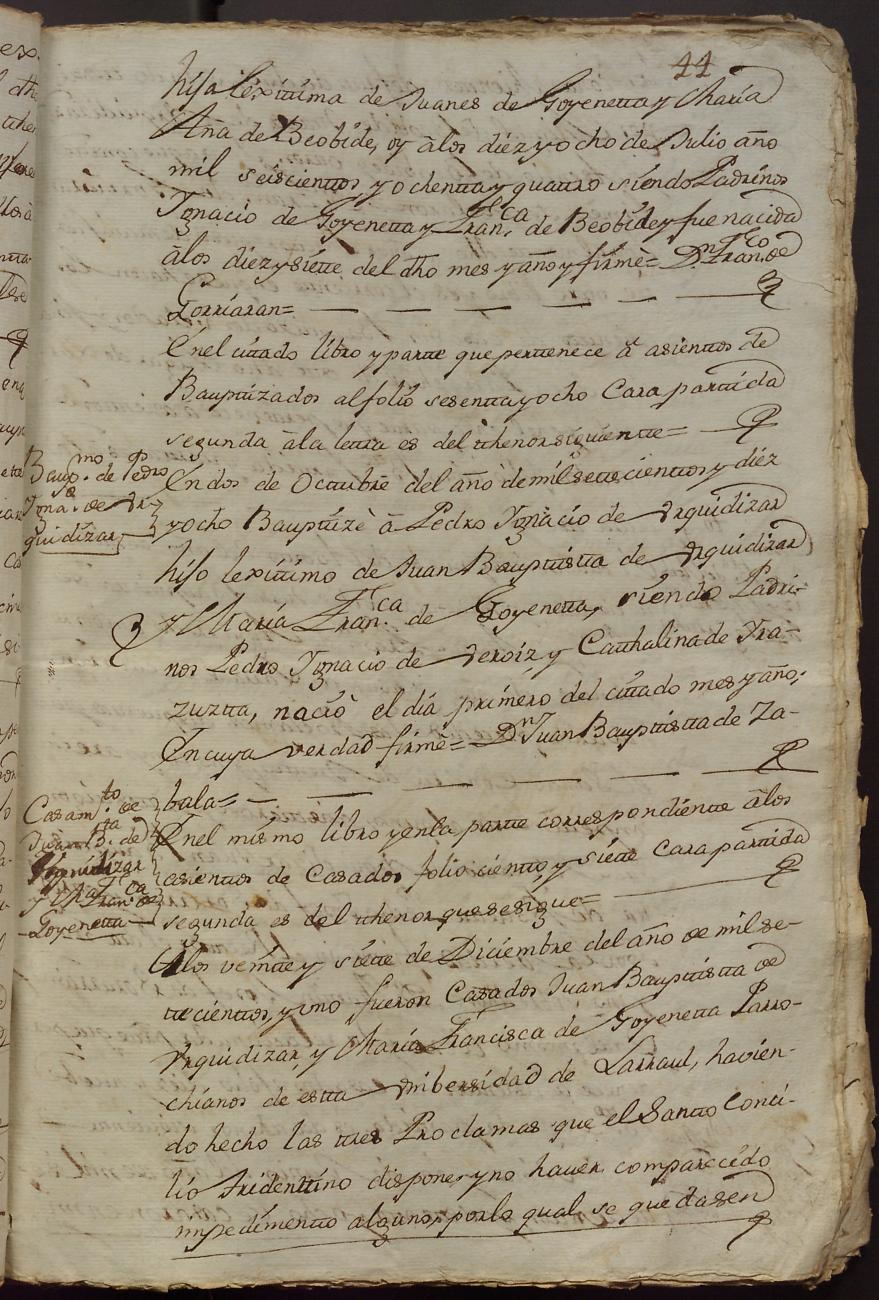 44
hija lexittima de Juanes de Goyenetta y María
Aña de Beobide, oy à los diez y ocho de Julio año
mil seiscienttos y ochentta y quattro siendo Padrinos
Ignacio de Goyenetta y Fran.ca de Beobide y fue nacida
à los diez y siette del dho mes y año y firmè= D.n Fran.co de
Gorriaran=
En el cittado libro y partte que perttenece â asienttos de
Bauptizados al folio sesentta y ocho Cara parttida
segunda à la lettra es del tthenor siguientte=
Baup.mo de Pedro
Igna.o de Vr-
quidizar
En dos de Octtubre del año de mil settecienttos y diez
y ocho Bauptizè â Pedro Ignacio de Vrquidizar
hijo lexittimo de Juan Bauptistta de Vrquidizar
y María Fran.ca de Goyenetta, siendo Padri-
nos Pedro Ignacio de Veroiz y Catthalina de Yra-
zuztta, naciò el día primero del cittado mes y año,
En cuya verdad firmè= D.n Juan Bauptistta de Za-
bala=
Casam.to de
Juan B.ta de
Vrquidizar
y Ma Fran.ca de
Goyenetta
En el mismo libro y en la partte correspondientte à los
asienttos de Casados folio cientto y siette cara parttida
segunda es del tthenor que se sigue=
A los veintte y siette de Diciembre del año de mil se-
ttecienttos, y uno fueron Casados Juan Bauptistta de
Vrquidizar, y María Francisca de Goyenetta Parro-
chianos de estta Vnibersidad de Larraul, havien-
do hecho las ttres Proclamas que el Santto Conci-
lio Tridenttino dispone, y no haver comparecido
impedimentto alguno, por lo qual se quedasen